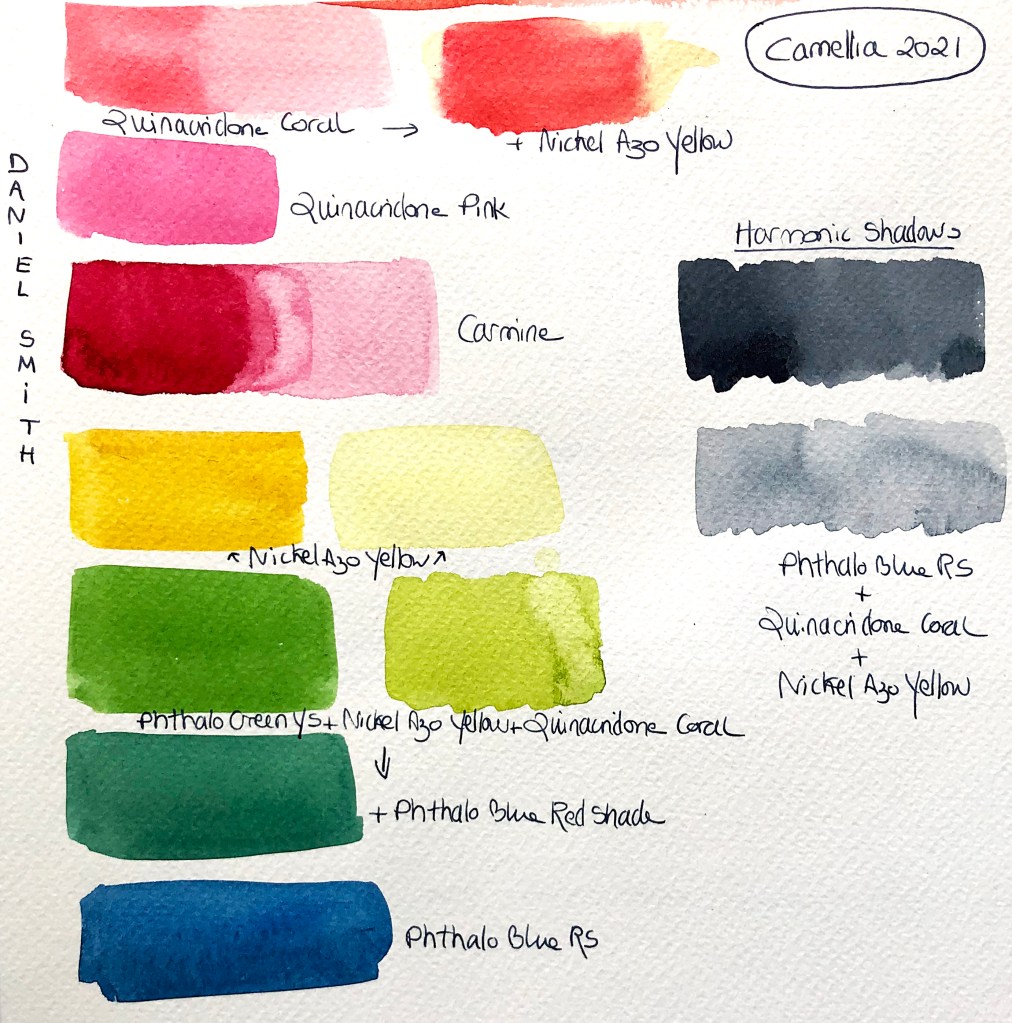 Camellia 2021
Quinacridone Coral →
+ Nickel Azo Yellow
DANIEL SMITH
Quinacridone Pink
Harmonic Shadows
Carmine
↖ Nickel Azo Yellow ↗
Phthalo Blue RS
+
Quinacridone Coral
+
Nickel Azo Yellow
Phthalo Green YS + Nickel Azo Yellow + Quinacridone Coral
↓
+ Phthalo Blue Red Shade
Phthalo Blue RS